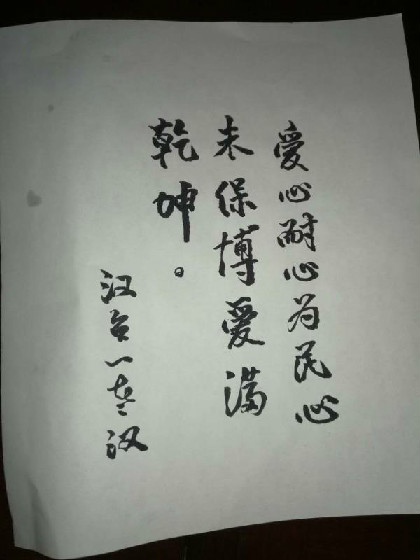 爱心耐心为民心
未保博爱满
乾坤。
江台一老汉